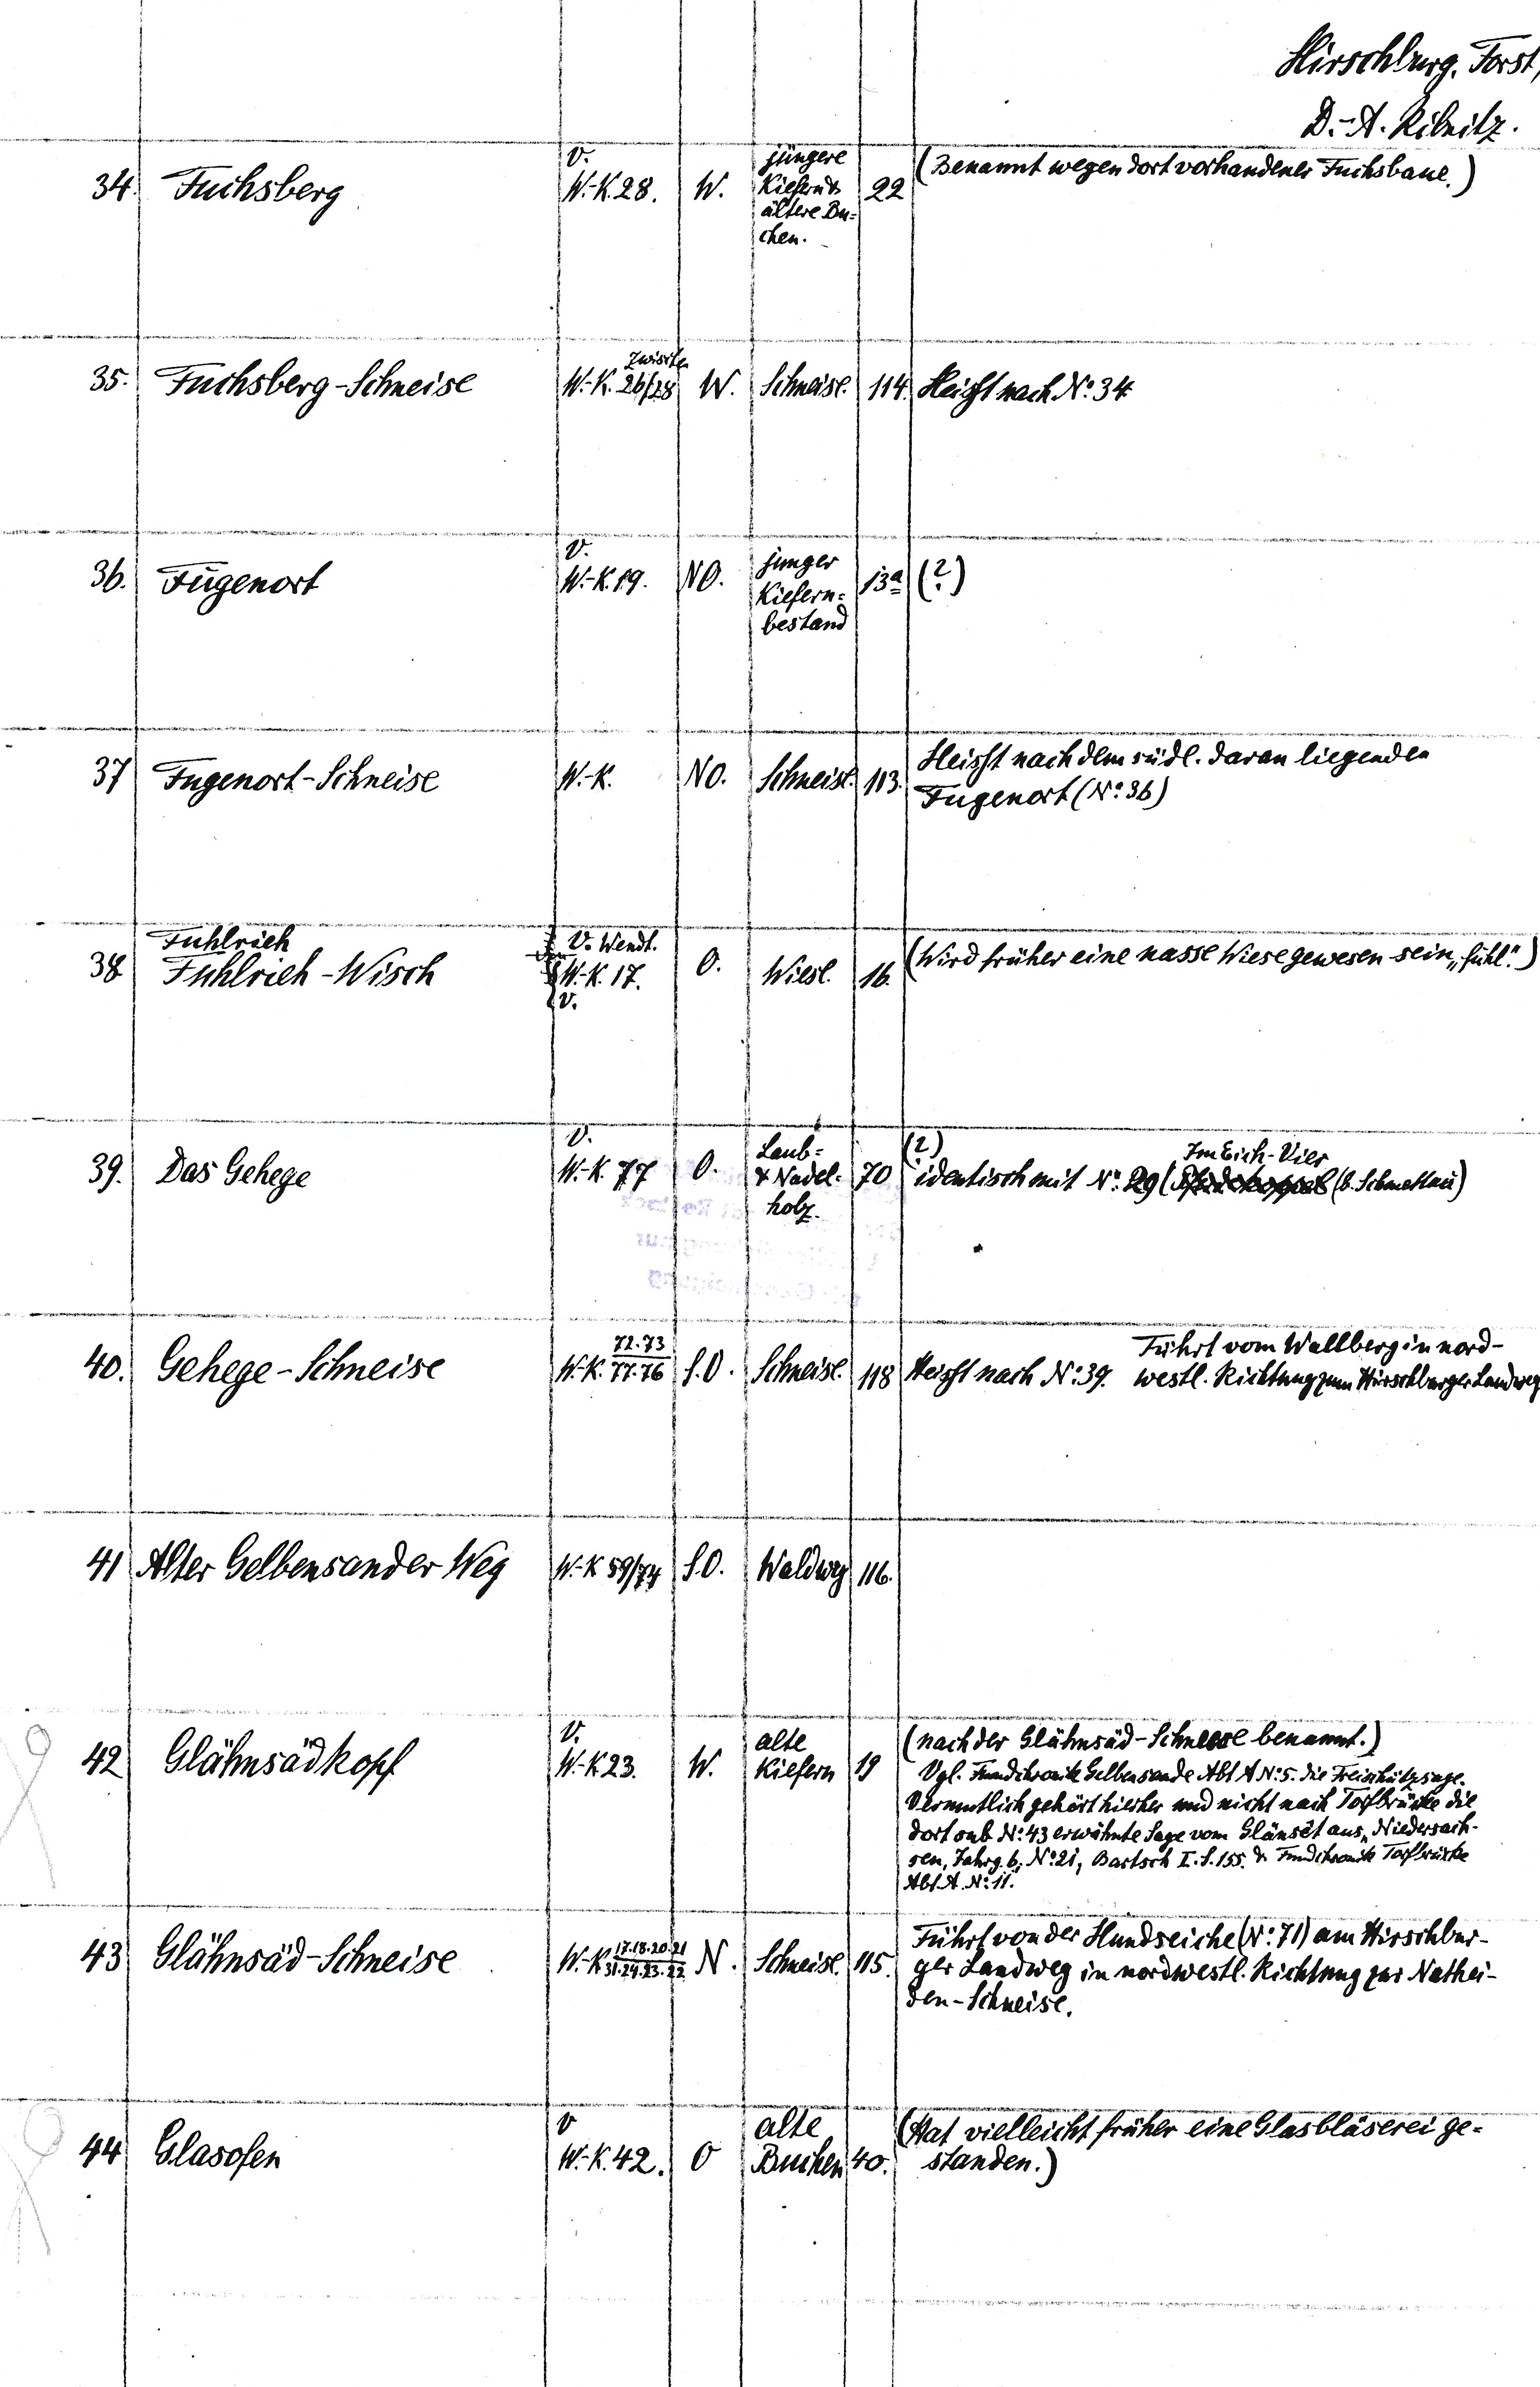 Hirschburg. Forst,
D.-A. Ribnitz.
34. Fuchsberg V. W.-K. 28. W. jüngere Kiefern & ältere Bu=chen. 22 (Benannt wegen dort vorhandener Fuchsbaue.)
35. Fuchsberg-Schneise zwischen W.-K. 26/28 W. Schneise. 114. Heisst nach No. 34
36. Fugenort V. W.-K. 19. NO. junger Kiefern=bestand 13a (?)
37 Fugenort-Schneise W.-K. NO. Schneise. 113. Heisst nach dem südl. daran liegenden
Fugenort (No. 36)
Fuhlrieh V. Wendt.
38. Fuhlrieh-Wisch W.-K. 17. V. O. Wiese. 16. (Wird früher eine nasse Wiese gewesen sein, „fuhl“.)
39. Das Gehege V. W.-K. 77 O. Laub= & Nadel=holz. 70 (?)
identisch mit No. 29 (Im Eich-Vier (b. Schmettau)
40. Gehege-Schneise W.-K. 72.73/77.76 S.O. Schneise. 118 Heisst nach No. 39. Führt vom Wallberg in nord-
westl. Richtung zum Hirschburger Landweg
41 Alter Gelbensander Weg W.-K 59/74 S.O. Waldweg 116.
42 Glähnsädkopf V. W.-K 23. W. alte Kiefern 19 (nach der Glähnsäd-Schneise benannt.)
Vgl. Fundchronik Gelbensande Abt A No. 5. die Freischützsage.
Vermutlich gehört hierher und nicht nach Torfbrücke die
dort sub No. 43 erwähnte Sage vom Glänsät aus „Niedersach-
sen, Jahrg. 6, No. 21, Bartsch I. S. 155. & Fundchronik Torfbrücke
Abt. A. No. 11.
43 Glähnsäd-Schneise W.-K 17.18.20.21/31.24.23.22 N. Schneise. 115. Führt von der Hundseiche (No. 71) am Hirschbur-
ger Landweg in nordwestl. Richtung zur Nathei-
den-Schneise.
44 Glasofen V W.-K. 42. O alte Buchen 40. (Hat vielleicht früher eine Glasbläserei ge-
standen.)